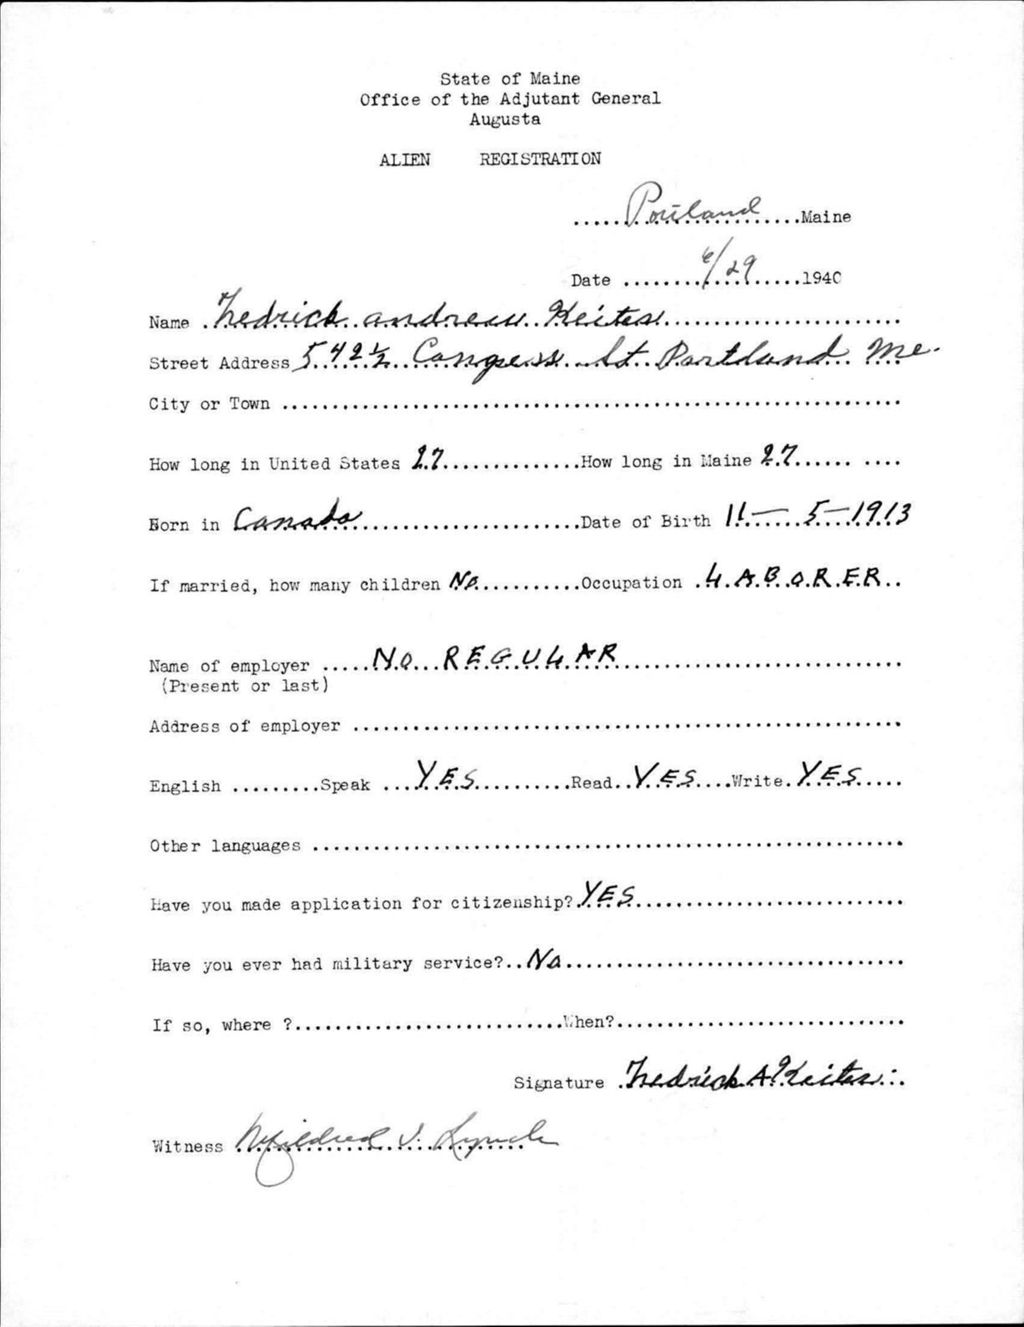 State of Maine
Office of the Adjutant General
Augusta
ALIEN REGISTRATION
Portland Maine
Date 6/29 1940
Name Fedrick andrew Keites
Street Address 542½ Congress St. Portland Me.
City or Town
How long in United States 27 How long in Maine 27
Born in Canada Date of Birth 11 — 5 — 1913
If married, how many children No Occupation LABORER
Name of employer No REGULAR
(Present or last)
Address of employer
English Speak YES Read YES Write YES
Other languages
Have you made application for citizenship? YES
Have you ever had military service? No
If so, where ? When?
Signature Fedrick A Keites
Witness Mildred J. Lynch